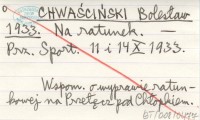 CHWAŚCIŃSKI Bolesław
1933. Na ratunek. —
Prz. Sport. 11 i 14 X 1933.
Wspom. o wyprawie ratun-
kowej na Przełęcz pod Chłopkiem.